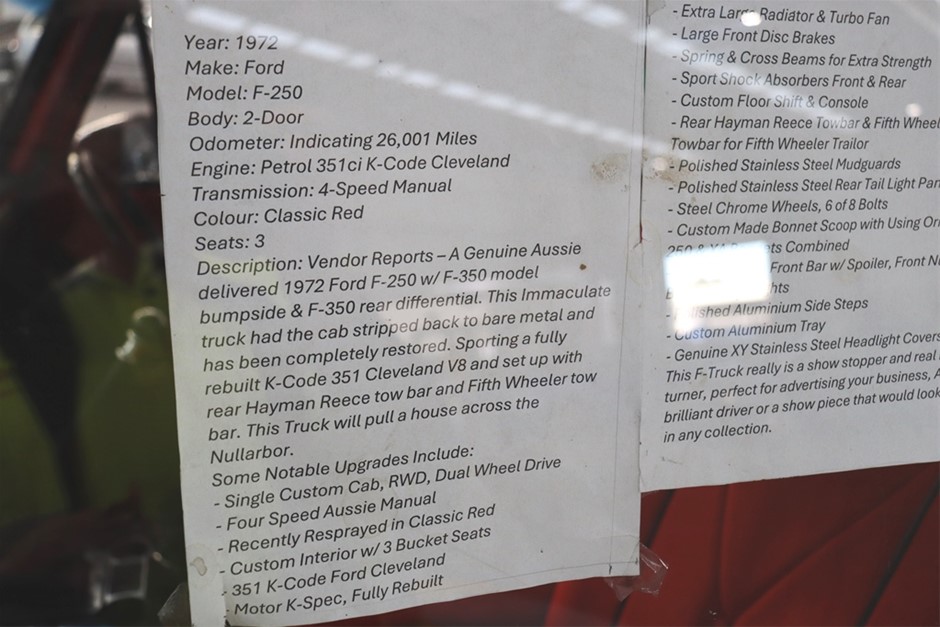 Year: 1972
Make: Ford
Model: F-250
Body: 2-Door
Odometer: Indicating 26,001 Miles
Engine: Petrol 351ci K-Code Cleveland
Transmission: 4-Speed Manual
Colour: Classic Red
Seats: 3
Description: Vendor Reports – A Genuine Aussie
delivered 1972 Ford F-250 w/ F-350 model
bumpside & F-350 rear differential. This Immaculate
truck had the cab stripped back to bare metal and
has been completely restored. Sporting a fully
rebuilt K-Code 351 Cleveland V8 and set up with
rear Hayman Reece tow bar and Fifth Wheeler tow
bar. This Truck will pull a house across the
Nullarbor.
Some Notable Upgrades Include:
- Single Custom Cab, RWD, Dual Wheel Drive
- Four Speed Aussie Manual
- Recently Resprayed in Classic Red
- Custom Interior w/ 3 Bucket Seats
- 351 K-Code Ford Cleveland
- Motor K-Spec, Fully Rebuilt
- Extra Large Radiator & Turbo Fan
- Large Front Disc Brakes
- Spring & Cross Beams for Extra Strength
- Sport Shock Absorbers Front & Rear
- Custom Floor Shift & Console
- Rear Hayman Reece Towbar & Fifth Wheel
Towbar for Fifth Wheeler Trailor
- Polished Stainless Steel Mudguards
- Polished Stainless Steel Rear Tail Light
- Steel Chrome Wheels, 6 of 8 Bolts
- Custom Made Bonnet Scoop with Using
250 & Combined
Front Bar w/ Spoiler, Front
- Polished Aluminium Side Steps
- Custom Aluminium Tray
- Genuine XY Stainless Steel Headlight Covers
This F-Truck really is a show stopper and real
turner, perfect for advertising your business,
brilliant driver or a show piece that would look
in any collection.